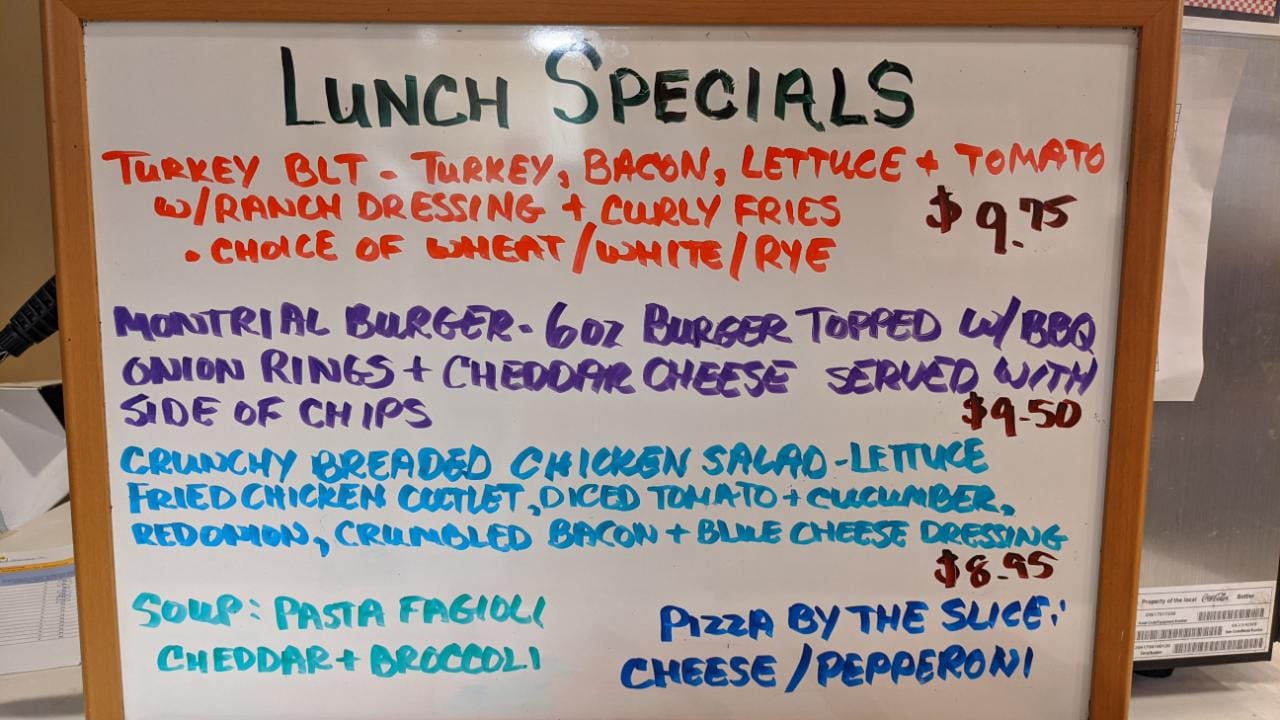 LUNCH SPECIALS
TURKEY BLT - TURKEY, BACON, LETTUCE + TOMATO
W/RANCH DRESSING + CURLY FRIES $9.75
• CHOICE OF WHEAT/WHITE/RYE
MONTRIAL BURGER - 6OZ BURGER TOPPED W/BBQ
ONION RINGS + CHEDDAR CHEESE SERVED WITH
SIDE OF CHIPS $9.50
CRUNCHY BREADED CHICKEN SALAD - LETTUCE
FRIED CHICKEN CUTLET, DICED TOMATO + CUCUMBER,
RED ONION, CRUMBLED BACON + BLUE CHEESE DRESSING
$8.95
SOUP: PASTA FAGIOLI
CHEDDAR + BROCCOLI
PIZZA BY THE SLICE:
CHEESE/PEPPERONI
Property of the local Coca-Cola Bottler